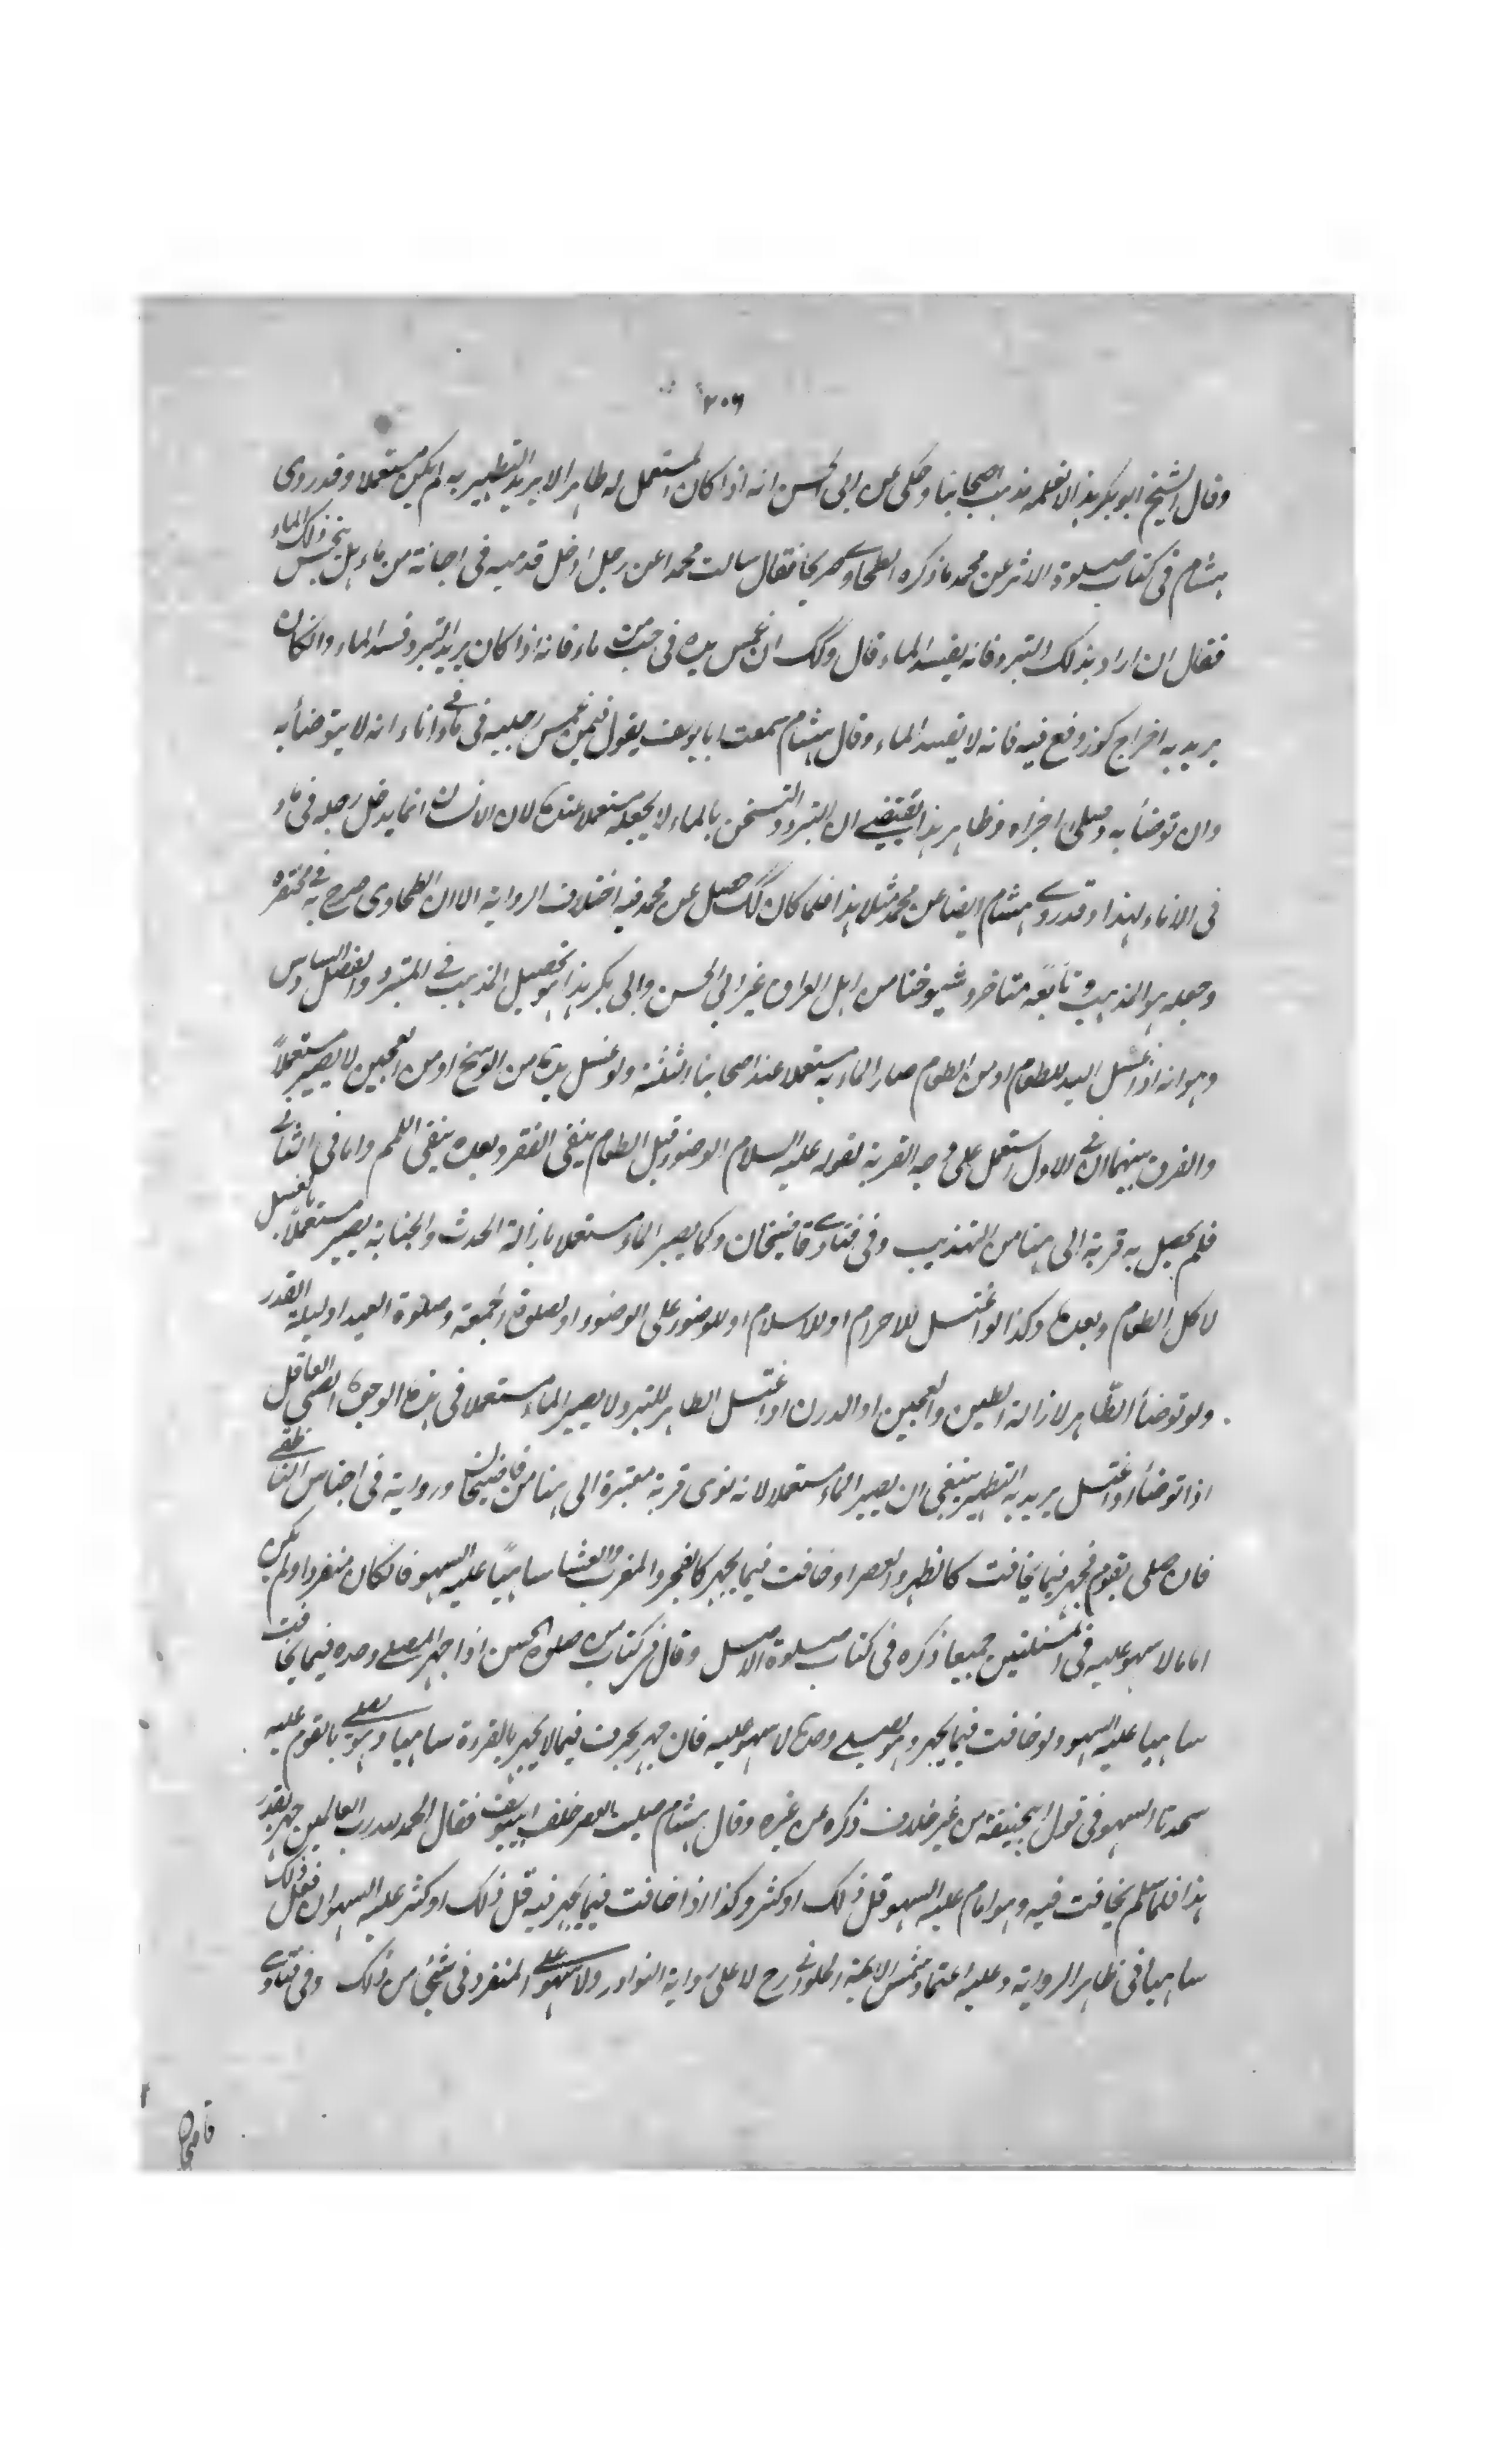 ٢٠٦
وقال الشيخ ابو بكر هذا لا نعلمه مذهب اصحابنا وحكى عن ابى الحسن انه اذا كان المستعمل له طاهرا لا يريد التطهير به لم يكن مستعملا وقد روى
هشام فى كتاب صلوة الاثر عن محمد ما ذكره الطحاوى صريحا فقال سالت محمدا عن رجل ادخل قدميه فى اجانة من ماء هل ينجس ذلك الماء
فقال ان اراد بذلك التبرد فانه يفسد الماء قال وكك ان غمس يده فى جب من ماء فانه اذا كان يريد التبرد فسد الماء وان كان
يريد به اخراج كوز وقع فيه فانه لا يفسد الماء وقال هشام سمعت ابا يوسف يقول فيمن غمس رجليه فى ماء فى اناء انه لا يتوضأ به
وان توضأ به وصلى اجزاه وظاهر هذا يقتضى ان التبرد والتسخن بالماء لا يجعله مستعملا عنده لان الانسان انما يدخل رجله فى ماء
فى الاناء لهذا وقد روى هشام ايضا عن محمد مثل هذا فلما كان كك حصل عن محمد فيه اختلاف الرواية الا ان الطحاوى صرح به فى مختصره
وجعله هو المذهب وتابعه متاخرو شيوخنا من اهل العراق غير ابى الحسن وابى بكر هذا هو تحصيل المذهب فى المتبرد والفصل السادس
وهو انه اذا غسل اليد للطعام او من الطعام صار الماء به مستعملا عند اصحابنا الثلثة ولو غسل يده من الوسخ او من العجين لا يصير مستعملاً
والفرق بينهما ان فى الاول استعمل على وجه القربة لقوله عليه السلام الوضوء قبل الطعام ينفى الفقر وبعده ينفى اللمم واما فى الثانى
فلم يحصل به قربة الى هنا من التهذيب وفى فتاوى قاضيخان وكما يصير الماء مستعملا بازالة الحدث والجنابة يصير مستعملاً بالغسل
لاكل الطعام وبعده وكذا لو اغتسل للاحرام او للاسلام او للوضوء على الوضوء او لصلوة الجمعة وصلوة العيد او ليلة القدر
ولو توضأ الطاهر لازالة الطين والعجين او الدرن او اغتسل الطاهر للتبرد لا يصير الماء مستعملا فى هذه الوجوه الصبى العاقل
اذا توضأ او اغتسل يريد به التطهير ينبغى ان يصير الماء مستعملا لانه نوى قربة معتبرة الى هنا من قاضيخان ورواية فى اجناس الناطفى
فان صلى بقوم فجهر فيما يخافت كالظهر والعصر او خافت فيما يجهر كالفجر والمغرب والعشا ساهيًا عليه السهو فان كان منفردا ولم يكن
اماما لا سهو عليه فى المسئلتين جميعا ذكره فى كتاب صلوة الاصل وقال فى كتاب من صلوة الحسن اذا جهر المصلى وحده فيما يخافت
ساهيا عليه السهو ولو خافت فيما يجهر وهو يصلى وحده لا سهو عليه فان جهر بحرف فيما لا يجهر بالقراءة ساهيا وهو يصلى بالقوم عليه
سجدتا السهو فى قول ابيحنيفة من غير خلاف ذكره عن غيره وقال هشام صليت العصر خلف ابى يوسف فقال الحمد لله رب العالمين جهر بقدر
هذا فلما سلم يخافت فيه وهو امام عليه السهو قل ذلك او كثر وكذا اذا خافت فيما يجهر فيه قل ذلك او كثر عليه السهو ان فعل ذلك
ساهيا فى ظاهر الرواية وعليه اعتماد شمس الائمة الحلوانى رح لا على رواية النوادر ولا سهو على المنفرد فى شئ من ذلك وفى فتاوى
قاضيخان